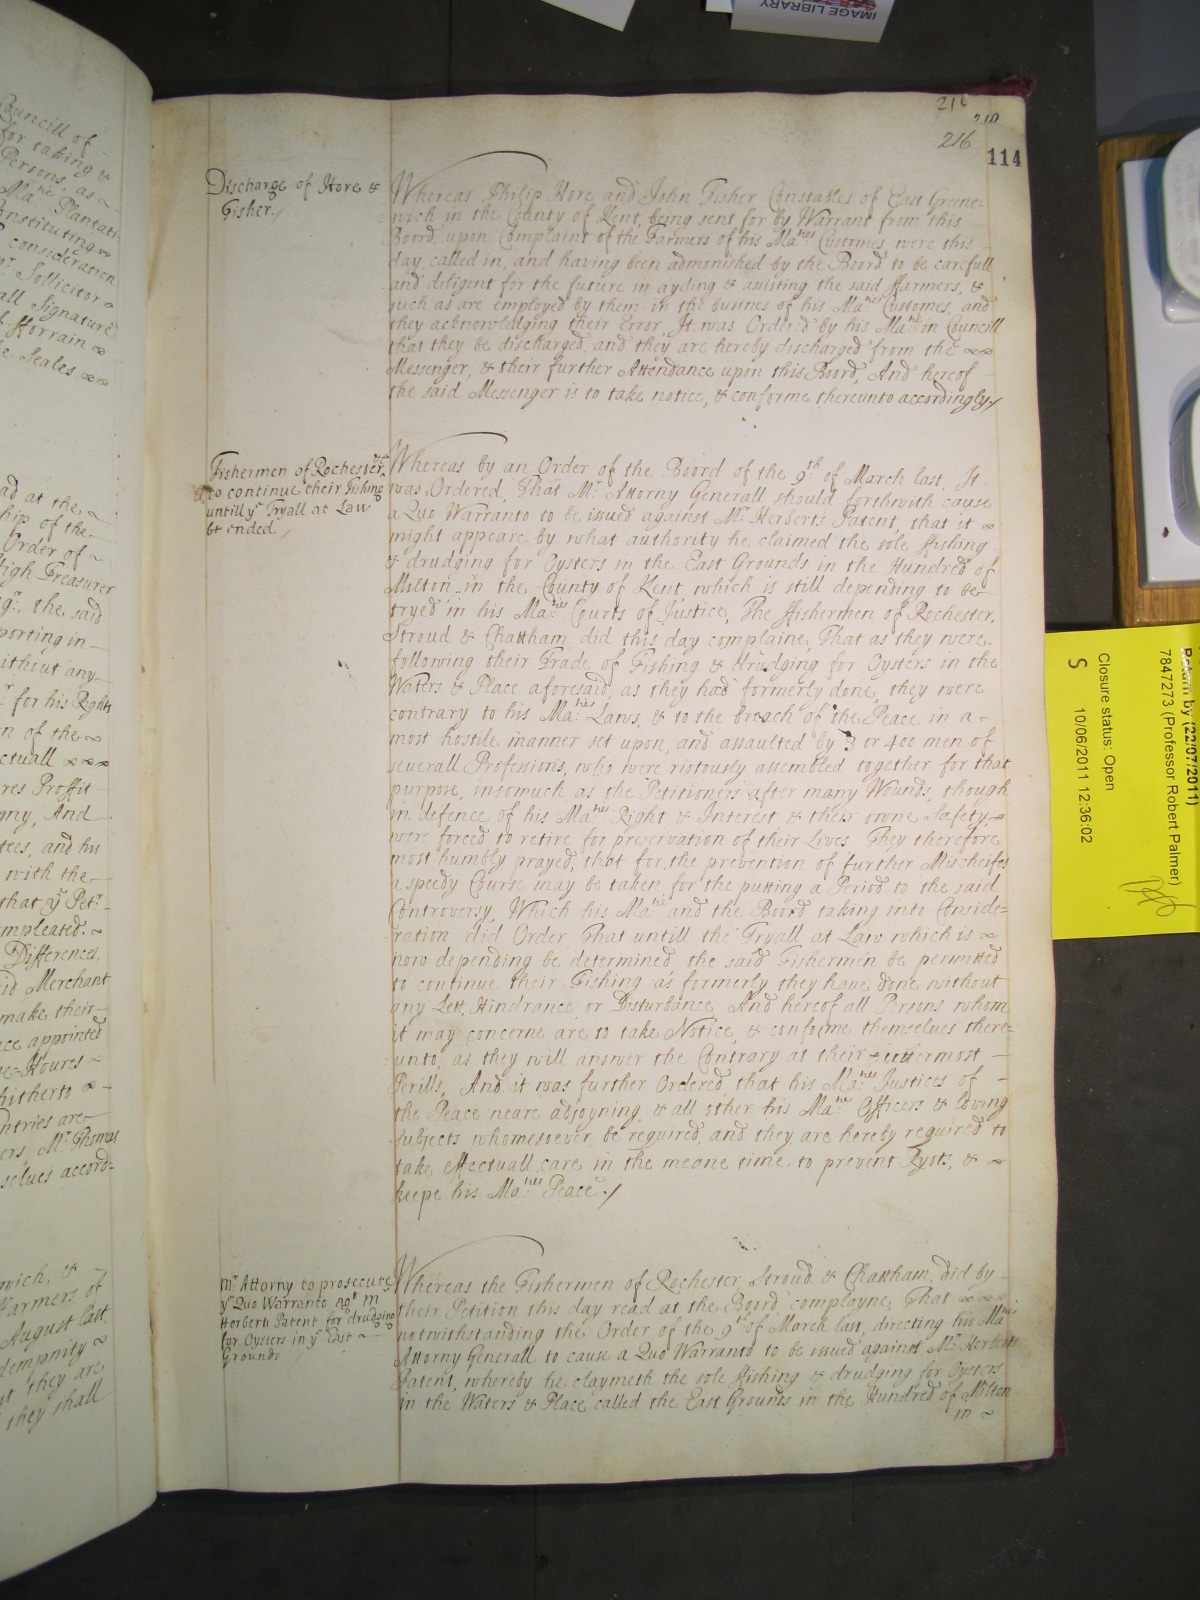 IMAGE LIBRARY
216
210
216
114
Discharge of Hore &
Fisher./
Whereas Philip Hore and John Fisher Constables of East Greene=
wich in the County of Kent, being sent for by Warrant from this
Board, upon Complaint of the Farmers of his Ma:ties Customes, were this
day, called in, and having been admonished by the Board to be carefull
and diligent for the future in ayding & assisting the said ffarmers, &
such as are employed by them in the busines of his Ma:ties Customes, and
they acknowledging their Error, It was Ordered by his Ma:tie in Councill
that they be discharged, and they are hereby discharged from the
Messenger, & their further Attendance upon this Board, And hereof
the said Messenger is to take notice, & conforme thereunto accordingly./
Fishermen of Rochester
to continue their Fishing
untill ye Tryall at Law
be ended./
Whereas by an Order of the Board of the 9th of March last, It
was Ordered, That Mr Attorny Generall should forthwith cause
a Quo Warranto to be issued against Mr Herberts Patent, that it
might appeare by what authority he claimed the sole ffishing
& drudging for Oysters in the East Grounds in the Hundred of
Milton in the County of Kent, which is still depending to be
tryed in his Ma:ties Courts of Justice, The ffishermen of Rochester,
Stroud & Chattham did this day complaine, That as they were
following their Trade of Fishing & drudging for Oysters in the
Waters & Place aforesaid, as they had formerly done, they were
contrary to his Ma:ties Laws, & to the breach of the Peace in a
most hostile manner set upon, and assaulted by 3 or 400 men of
severall Professions, who were riotously assembled together for that
purpose, insomuch as the Petitioners after many Wounds, though
in defence of his Ma:ties Right & Interest & their owne Safety
were forced to retire for preservation of their Lives They therefore
most humbly prayed, that for the prevention of further Mischeifes
a speedy Course may be taken for the putting a Period to the said
Controversy, Which his Ma:tie and the Board taking into Conside=
ration did Order That untill the Tryall at Law which is
now depending be determined the said Fishermen be permitted
to continue their Fishing as formerly they have done without
any Lett, Hindrance or Disturbance And hereof all Persons whom
it may concerne are to take Notice, & conforme themselves there=
unto, as they will answer the Contrary at their uttermost
Perills, And it was further Ordered, that his Ma:ties Justices of
the Peace neare adjoyning & all other his Ma:ties Officers & loving
subjects whomesoever be required, and they are hereby required to
take effectuall care in the meane time to prevent Ryots, &
keepe his Ma:ties Peace./
Mr Attorny to prosecute
ye Quo Warranto agt Mr
Herbert Patent for drudging
for Oysters in ye East
Grounds /
Whereas the Fishermen of Rochester, Stroud & Chattham did by
their Petition this day read at the Board complayne, That
notwithstanding the Order of the 9th of March last, directing his Ma:ties
Attorny Generall to cause a Quo Warranto to be issued against Mr Herberts
Patent, whereby he claymeth the sole ffishing & drudging for Oysters
in the Waters & Place called the East Grounds in the Hundred of Milton
in
Councill of
for taking &
Persons, as
Ma:ties Plantati
onstituting
consideration
Sollicitor
all Signature
Seales
ad at the
hip of the
Order of
high Treasurer
the said
porting in
ithout any
for his Right
n of the
ctuall
res Proffit
gny, And
tees, and his
with the
that ye Petr
mpleated.
Differences
id Merchant
make their
ce appointed
Houres
hitherto
ntries are
ers, Mr Thomas
selves accord=
wich, &
ffarmers of
August last
demnity
they are
they shall
Return by (22/07/2011)
7847273 (Professor Robert Palmer)
Closure status: Open
S 10/06/2011 12:36:02